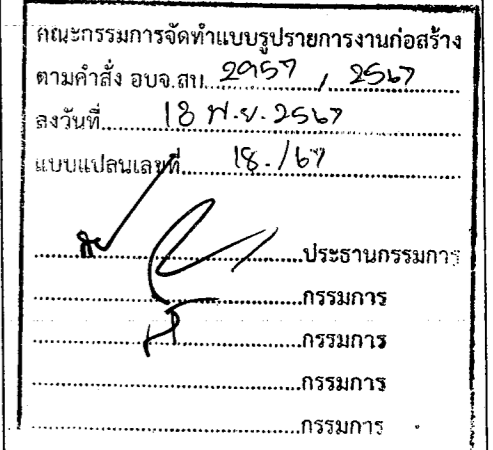 คณะกรรมการจัดทำแบบรูปรายการงานก่อสร้าง
ตามคำสั่ง อบจ.สบ. 2957 / 2567
ลงวันที่ 18 พ.ย. 2567
แบบแปลนเลขที่ 18. /67
ประธานกรรมการ
กรรมการ
กรรมการ
กรรมการ
กรรมการ